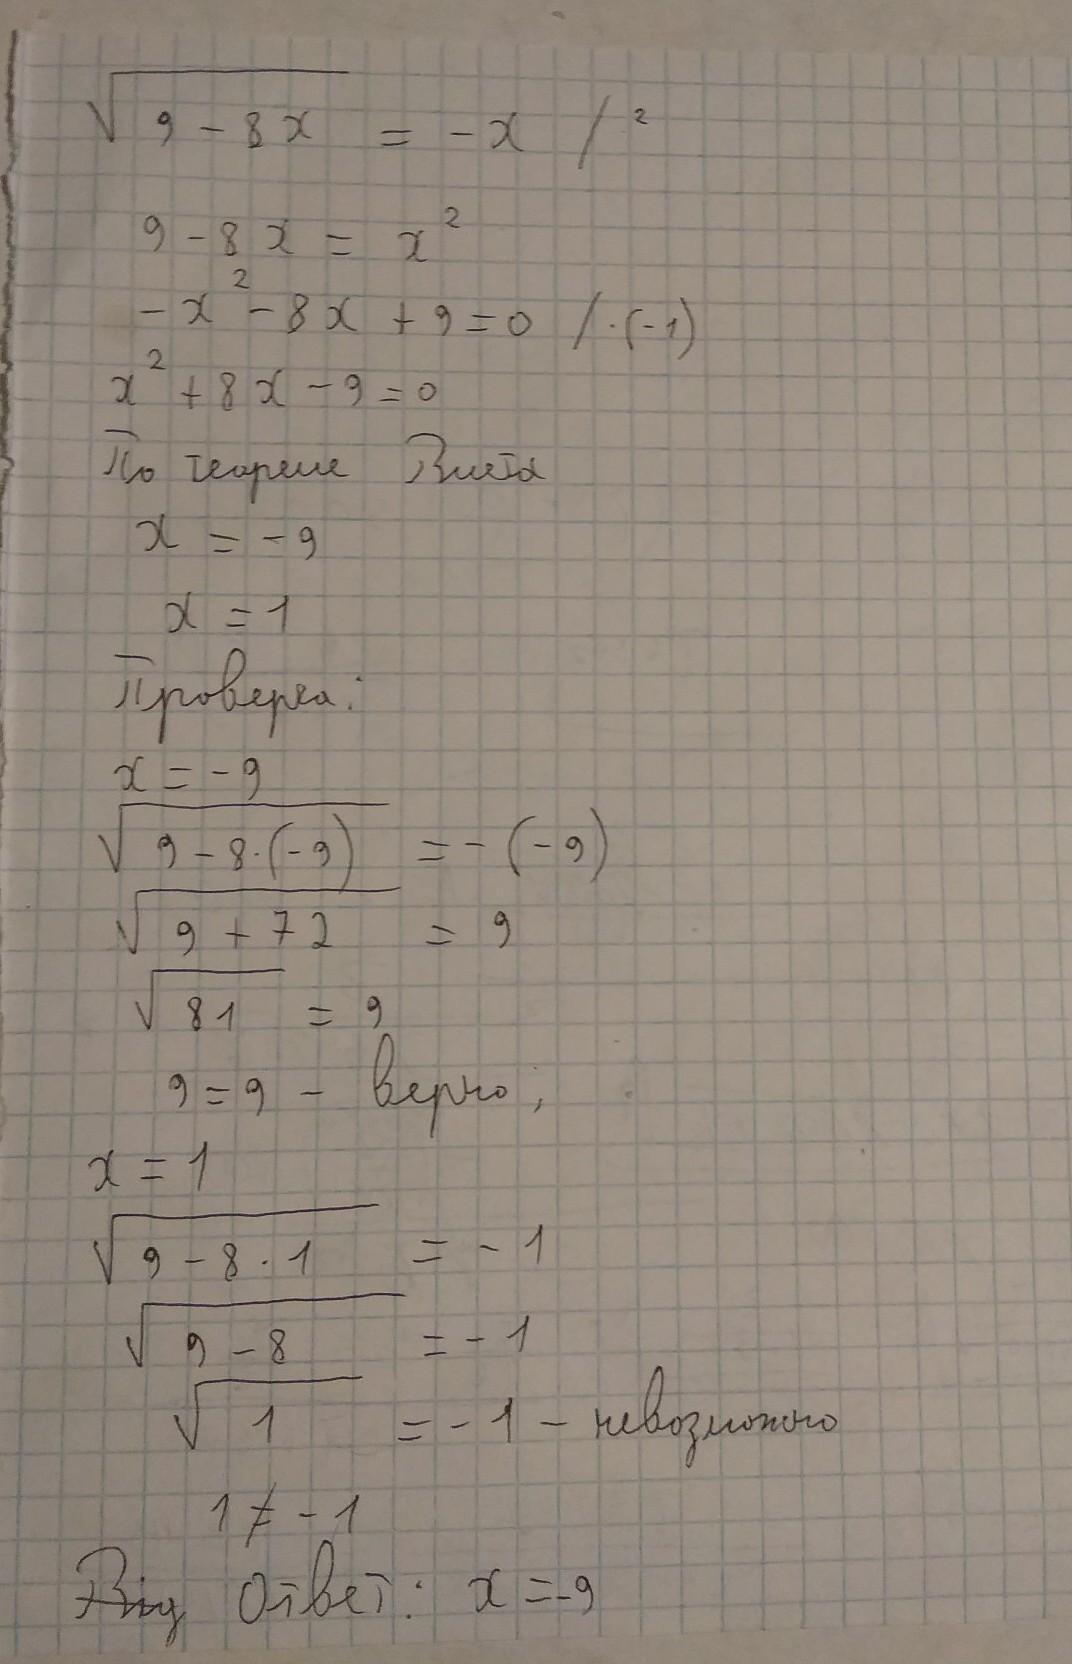 √9 - 8x = -x / ²
9 - 8x = x²
-x² - 8x + 9 = 0 / ·(-1)
x² + 8x - 9 = 0
По теореме Виета
x = -9
x = 1
Проверка:
x = -9
√9 - 8·(-9) = -(-9)
√9 + 72 = 9
√81 = 9
9 = 9 - верно;
x = 1
√9 - 8·1 = -1
√9 - 8 = -1
√1 = -1 - невозможно
1 ≠ -1
Від Ответ: x = -9